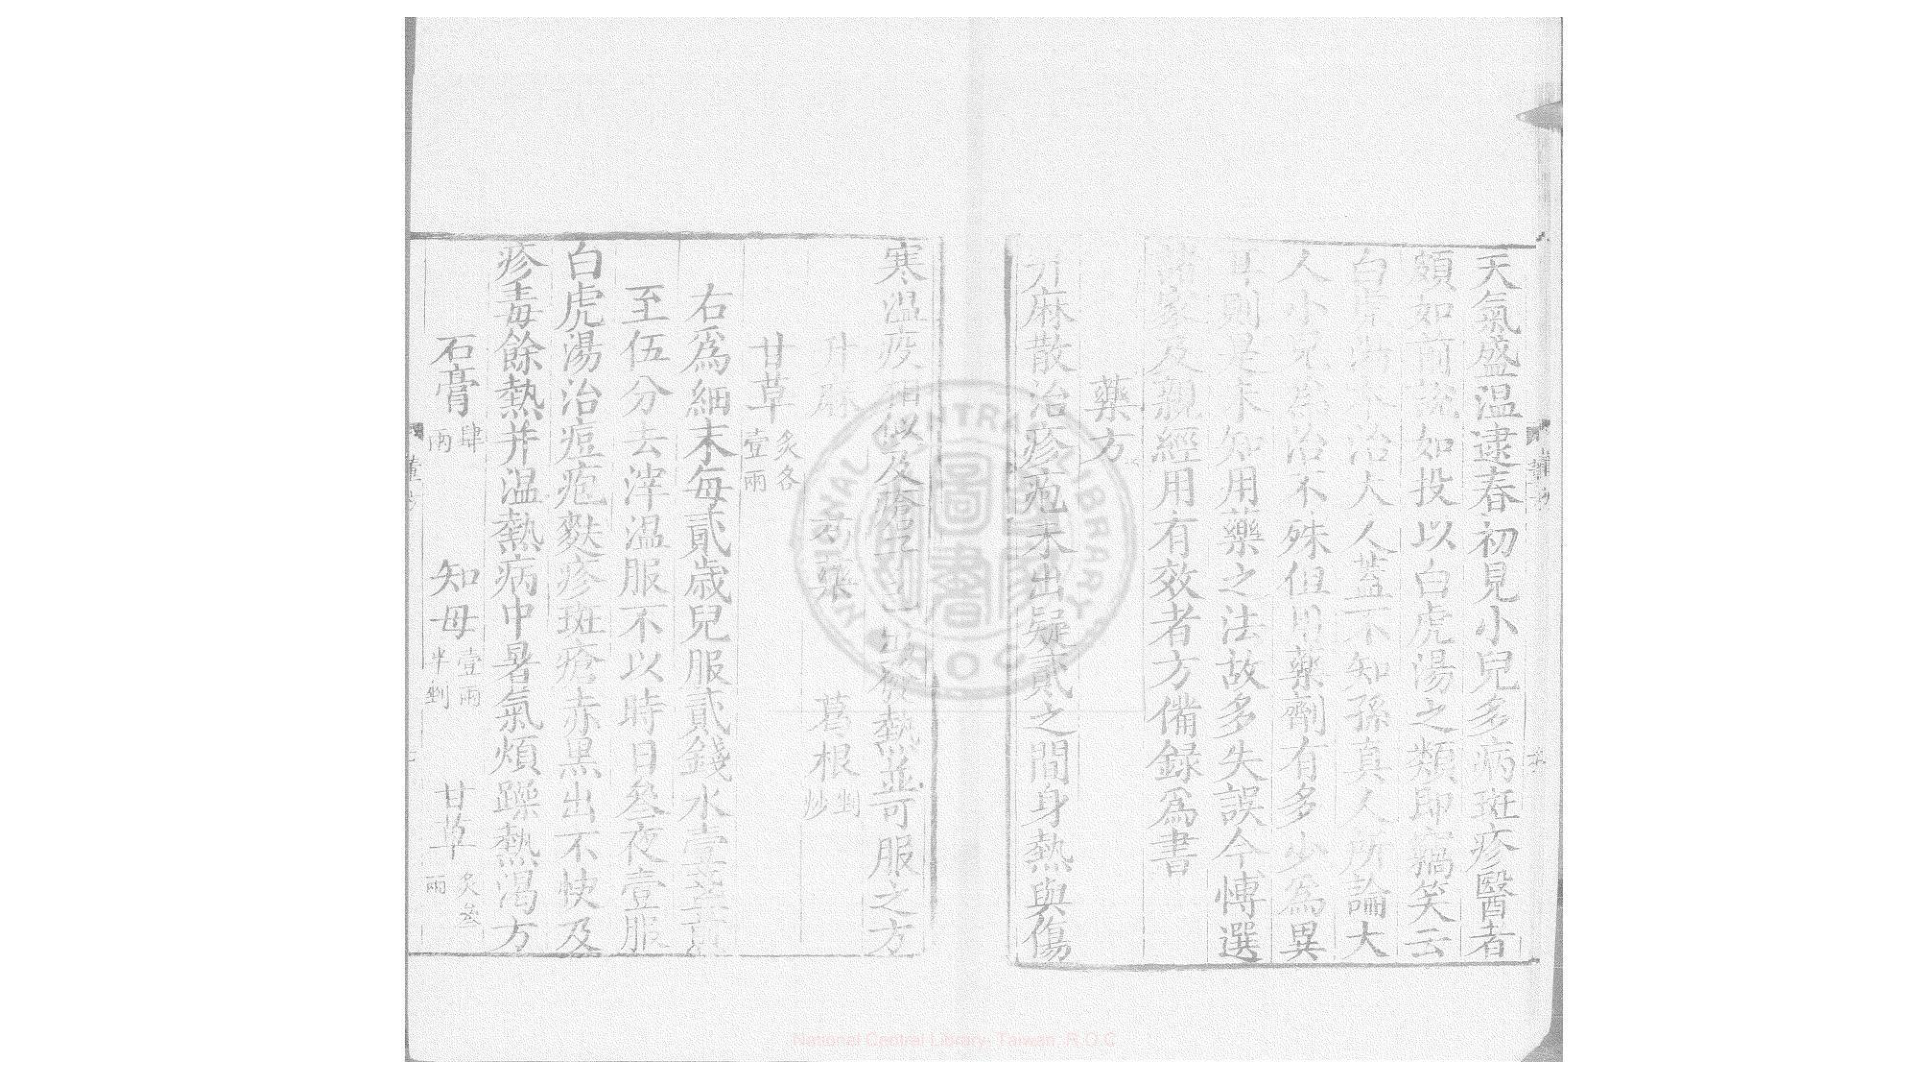 天氣盛温逮春初見小兒多病斑疹醫者
頗如前説如投以白虎湯之類即竊笑云
白虎湯不治大人蓋不知孫真人所論大
人小兒為治不殊但用藥劑有多少為異
耳則是未知用藥之法故多失誤今慱選
諸家及親經用有效者方備録為書
藥方
升麻散治疹疱未出疑貳之間身熱與傷
寒温疫相似及瘡子已出發熱並可服之方
升麻 芍藥 葛根剉炒
甘草炙各壹兩
右為細末每貳歳兒服貳錢水壹盞煎
至伍分去滓温服不以時日叁夜壹服
白虎湯治痘疱麩疹斑瘡赤黒出不快及
疹毒餘熱并温熱病中暑氣煩躁熱渴方
石膏肆兩 知母壹兩半剉 甘草炙叁兩
National Central Library- Taiwan, R.O.C
NATIONAL CENTRAL LIBRARY
R.O.C